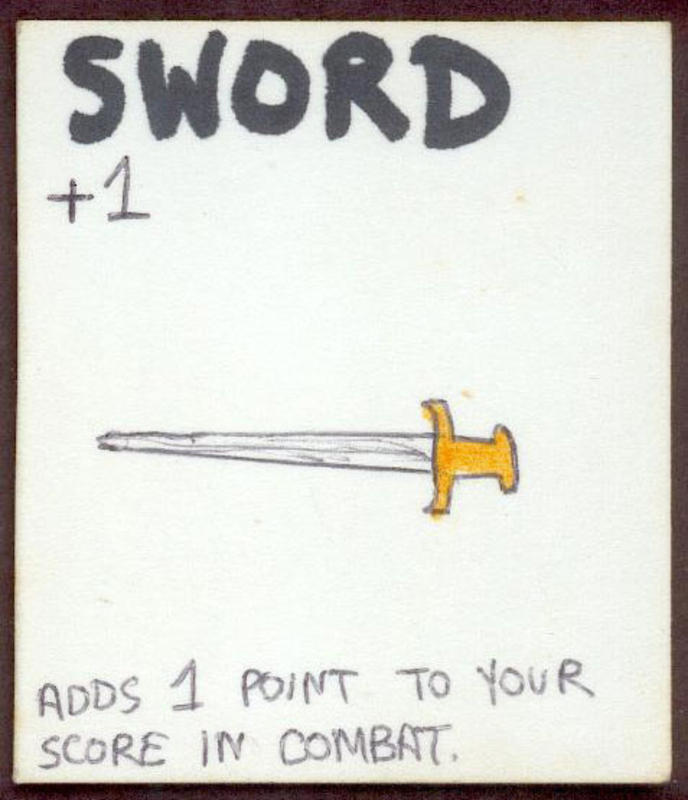 SWORD
+1
ADDS 1 POINT TO YOUR
SCORE IN COMBAT.